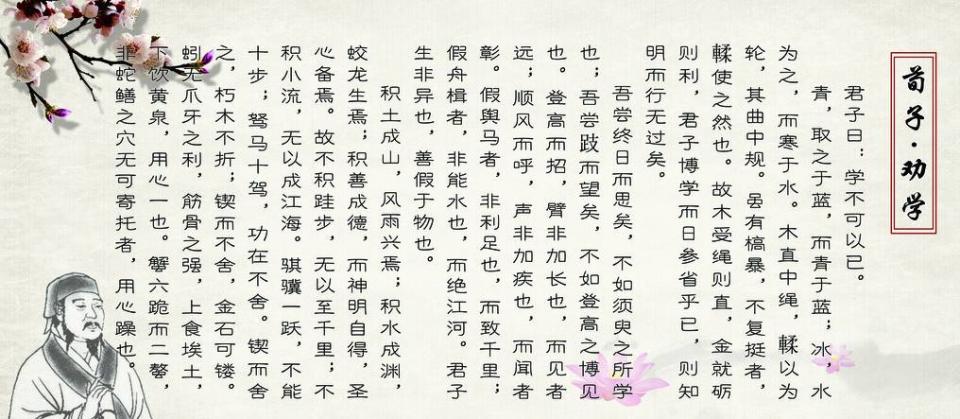 荀子·劝学
君子曰：学不可以已。
青，取之于蓝，而青于蓝；冰，水
为之，而寒于水。木直中绳，輮以为
轮，其曲中规。虽有槁暴，不复挺者，
輮使之然也。故木受绳则直，金就砺
则利，君子博学而日参省乎已，则知
明而行无过矣。
吾尝终日而思矣，不如须臾之所学
也；吾尝跂而望矣，不如登高之博见
也。登高而招，臂非加长也，而见者
远；顺风而呼，声非加疾也，而闻者
彰。假舆马者，非利足也，而致千里；
假舟楫者，非能水也，而绝江河。君子
生非异也，善假于物也。
积土成山，风雨兴焉；积水成渊，
蛟龙生焉；积善成德，而神明自得，圣
心备焉。故不积跬步，无以至千里；不
积小流，无以成江海。骐骥一跃，不能
十步；驽马十驾，功在不舍。锲而舍
之，朽木不折；锲而不舍，金石可镂。
蚓无爪牙之利，筋骨之强，上食埃土，
下饮黄泉，用心一也。蟹六跪而二螯，
非蛇鳝之穴无可寄托者，用心躁也。